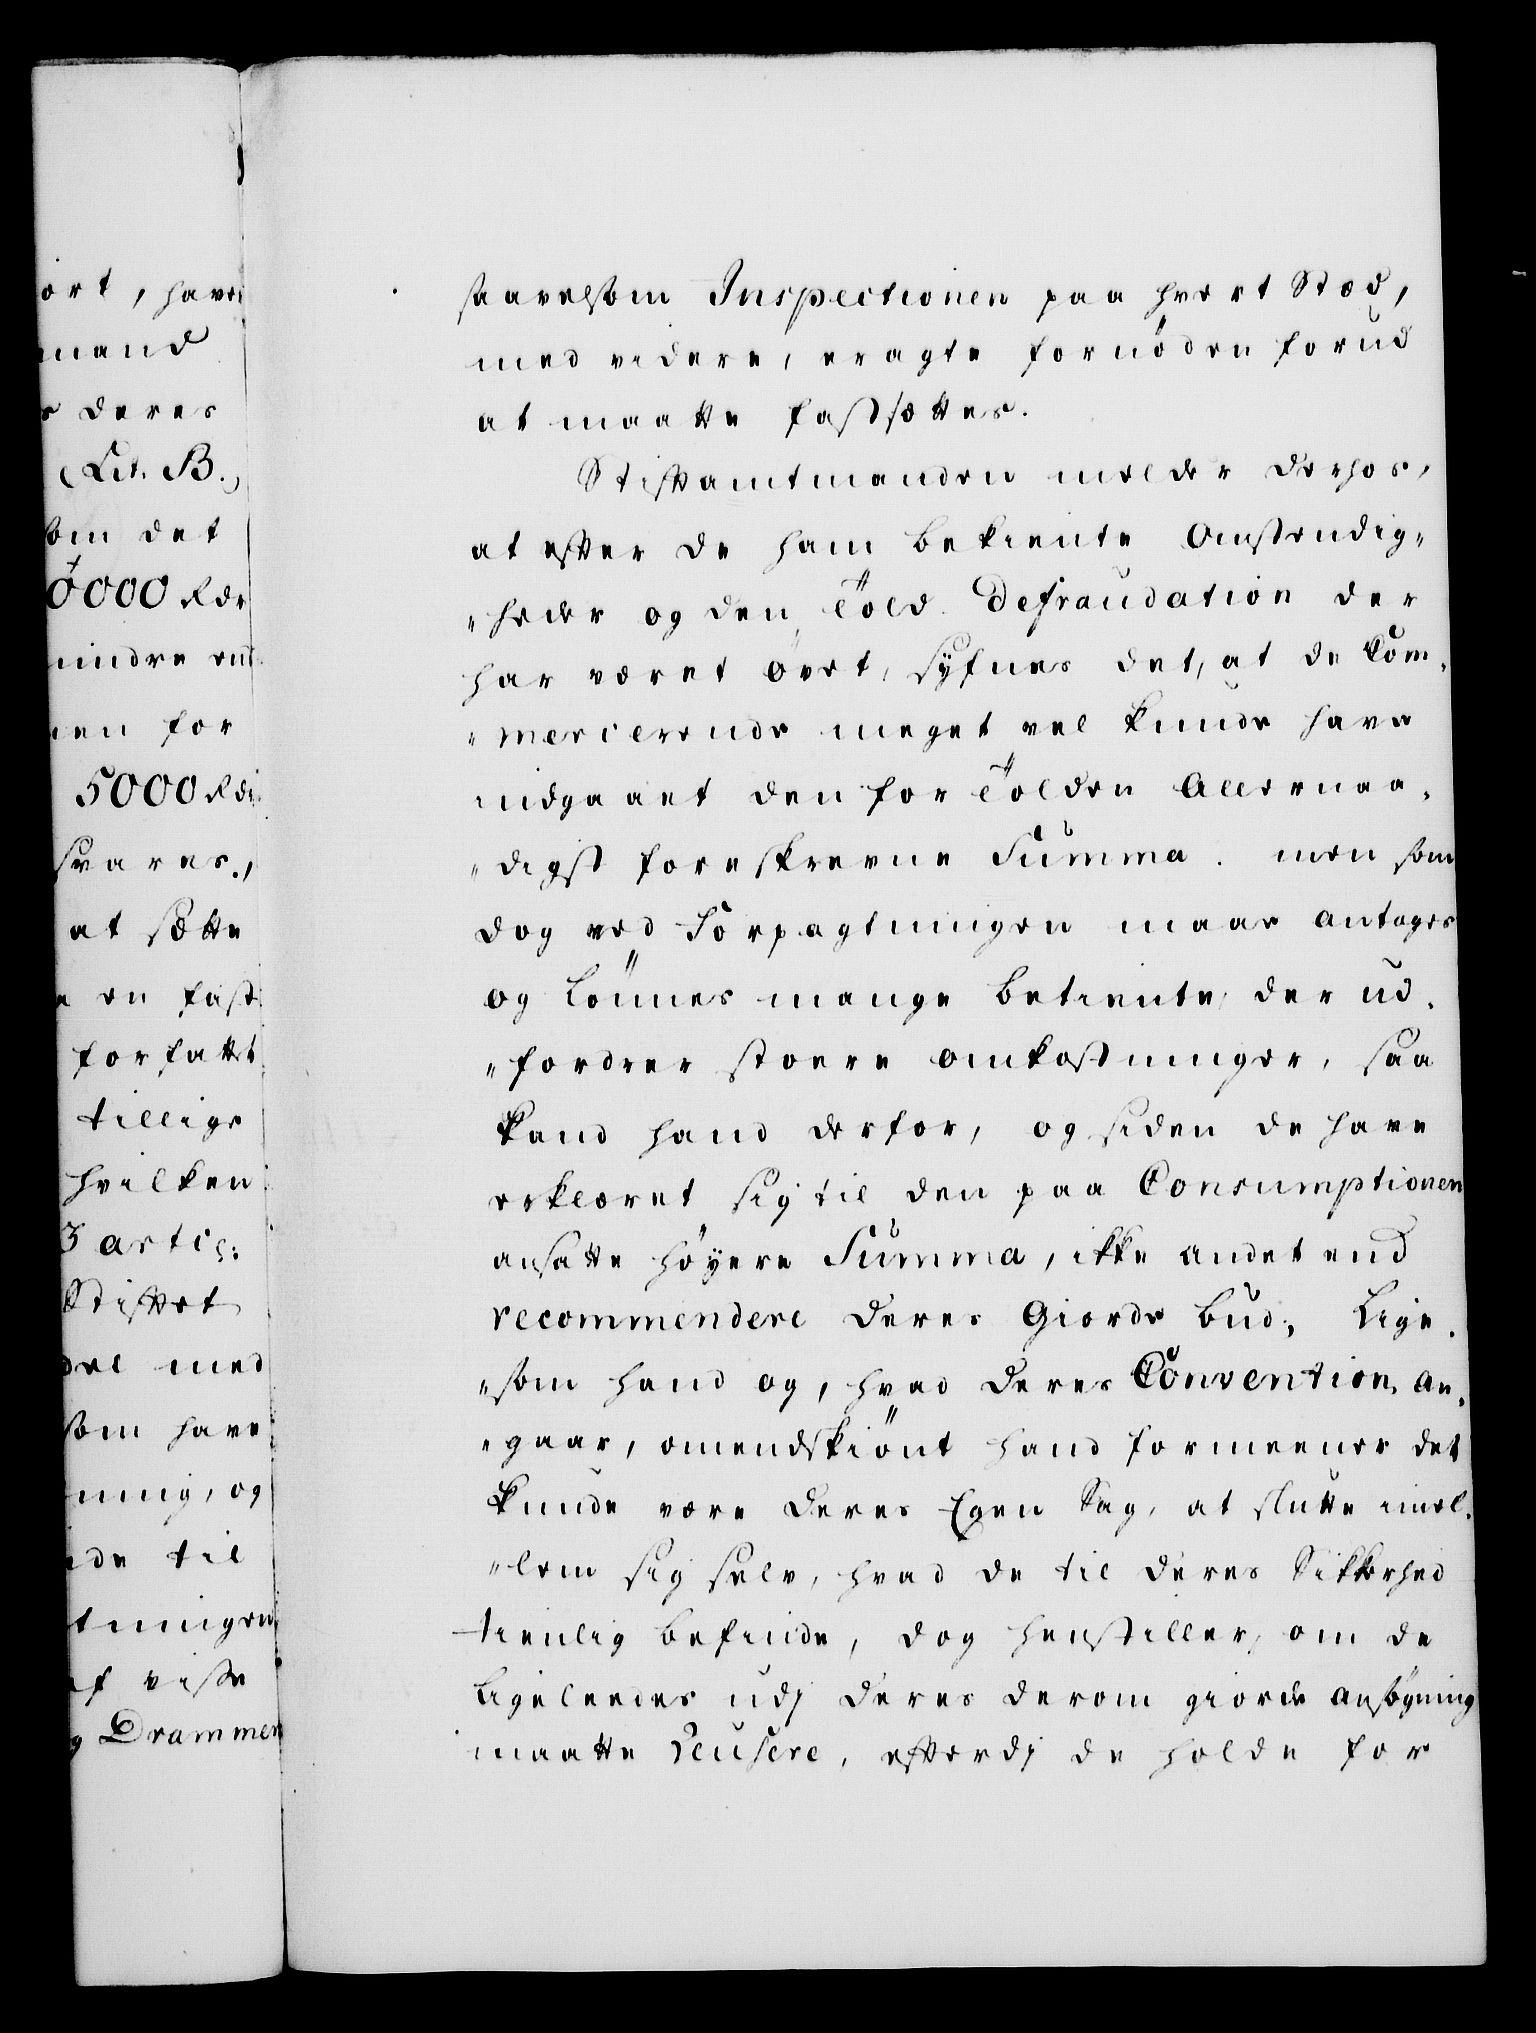 ört, have
mand
s deres
(Lit. B.)
som det
0000 Rdr
mindre end
nen for
5000 Rdr
svares.,
at sætte
en fast
forfattet
tillige
hvilken
3 artic:
Stiftet
del med
som have
ning, og
de til
tningen
af visse
g Drammen
saavelsom Inspectionen paa hvert Stæd,
med videre, eragte fornöden forud
at maatte fastsættes.
Stiftamtmanden melder derhos,
at efter de ham bekiente Omstendig„
„heder og den Told Defraudation der
har været øvet, syfnes det, at de Com„
„mercierende meget vel kunde have
indgaaet den for Tolden Allernaa„
„digst foreskrevne Summa. men som
dog ved Forpagtningen maae antages
og lönnes mange betiente, der ud„
„fordrer stoere omkostninger, saa
kand hand derfor, og siden de have
erklæret sig til den paa Consumptionen
ansatte höyere Summa, ikke andet end
recommendere deres Giorde bud; Lige„
„som hand og, hvad deres Convention an„
„gaar, omendskiönt hand formeener det
kunde være deres Egen Sag, at slutte imel„
„lem sig selv, hvad de til deres Sikkerhed
tienlig befinde, dog henstiller, om de
ligeleedes udj deres derom giorde ansögning
maatte reusere, efterdj de holde for